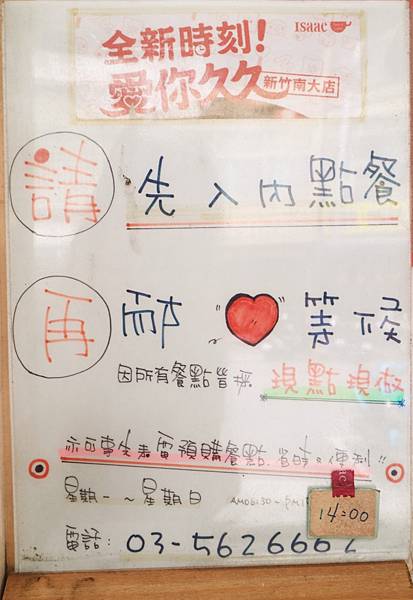 Isaac
全新時刻!
愛你久久 新竹南大店
請先入內點餐
再耐 ❤ 等候
因所有餐點皆採 現點現做
亦可事先來電預購餐點.省時。便利!!
星期一~星期日 AM06:30~PM 14:00
電話: 03-562666